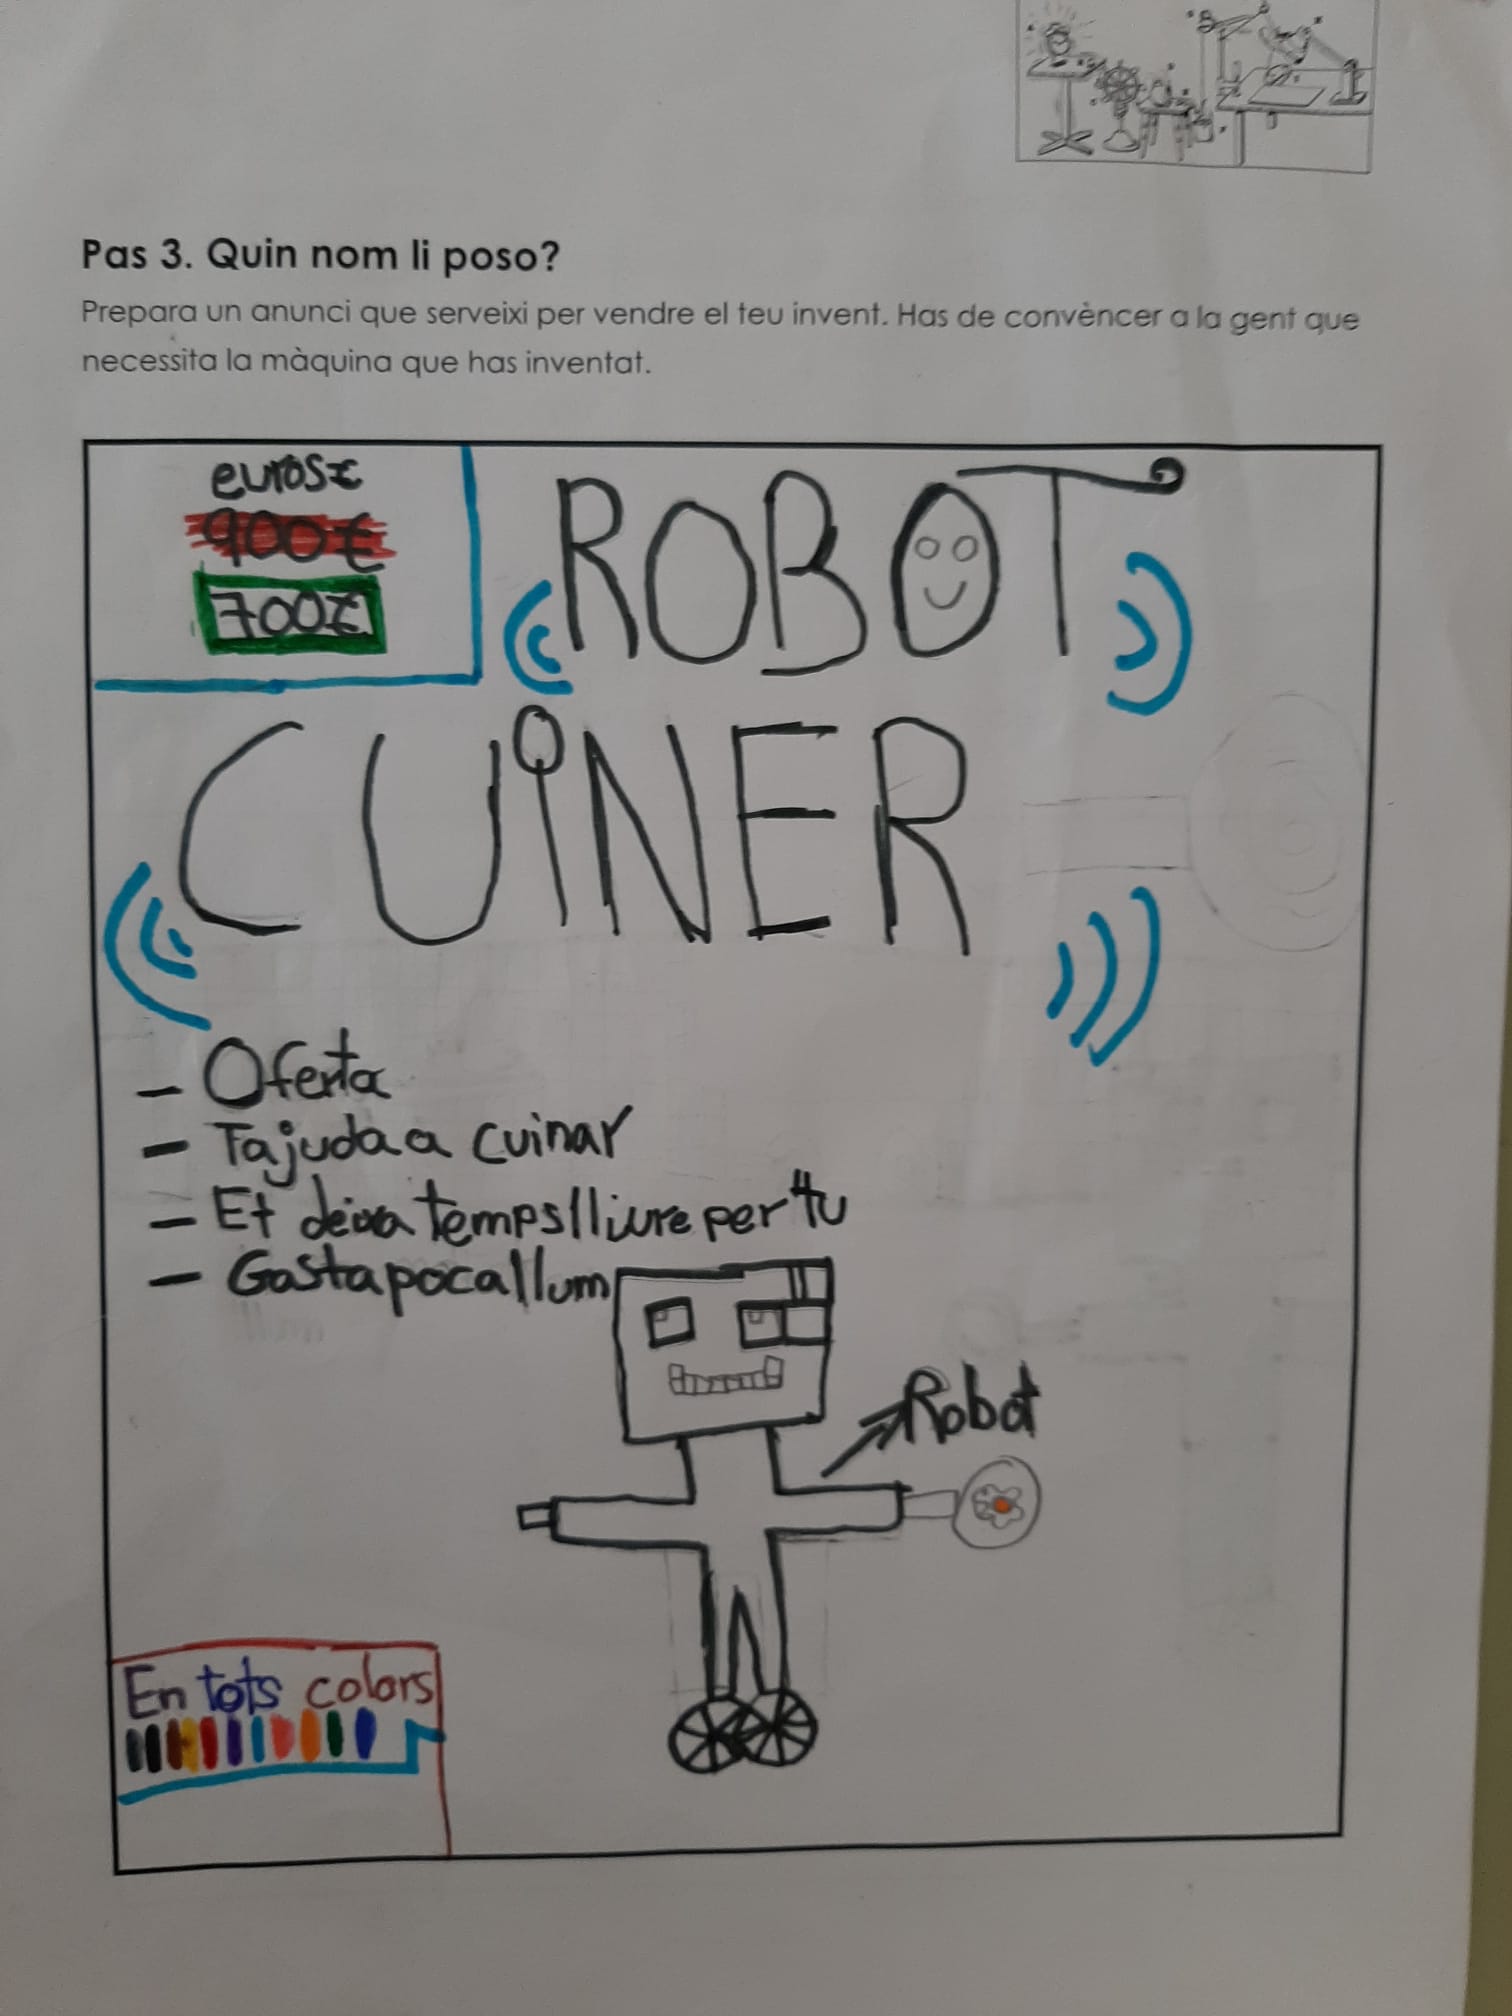 Pas 3. Quin nom li poso?
Prepara un anunci que serveixi per vendre el teu invent. Has de convèncer a la gent que
necessita la màquina que has inventat.
euros€
900€
700€
ROBOT
CUiNER
- Oferta
- Tajuda a cuinar
- Et deixa temps lliure per tu
- Gasta poca llum
Robot
En tots colors